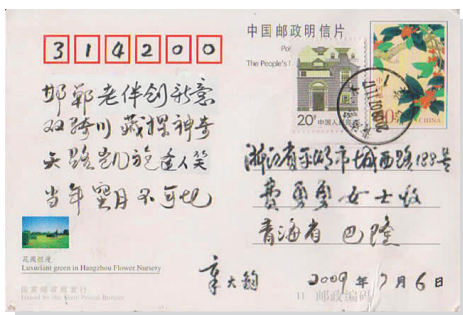 314200
中国邮政明信片
Po
The People's
20分
中国人民邮政
CHINA
邯郸老伴创新意
双骑川藏探神奇
天路凯旋逢人笑
当年 不可比
浙江省平湖市城西路188号
费勇勇女士收
青海省 巴隆
章大钧
2009年7月6日
花圃拾漫
Luxuriant green in Hangzhou Flower Nursery
国家邮政局发行
Issued by the State Postal Bureau
邮政编码